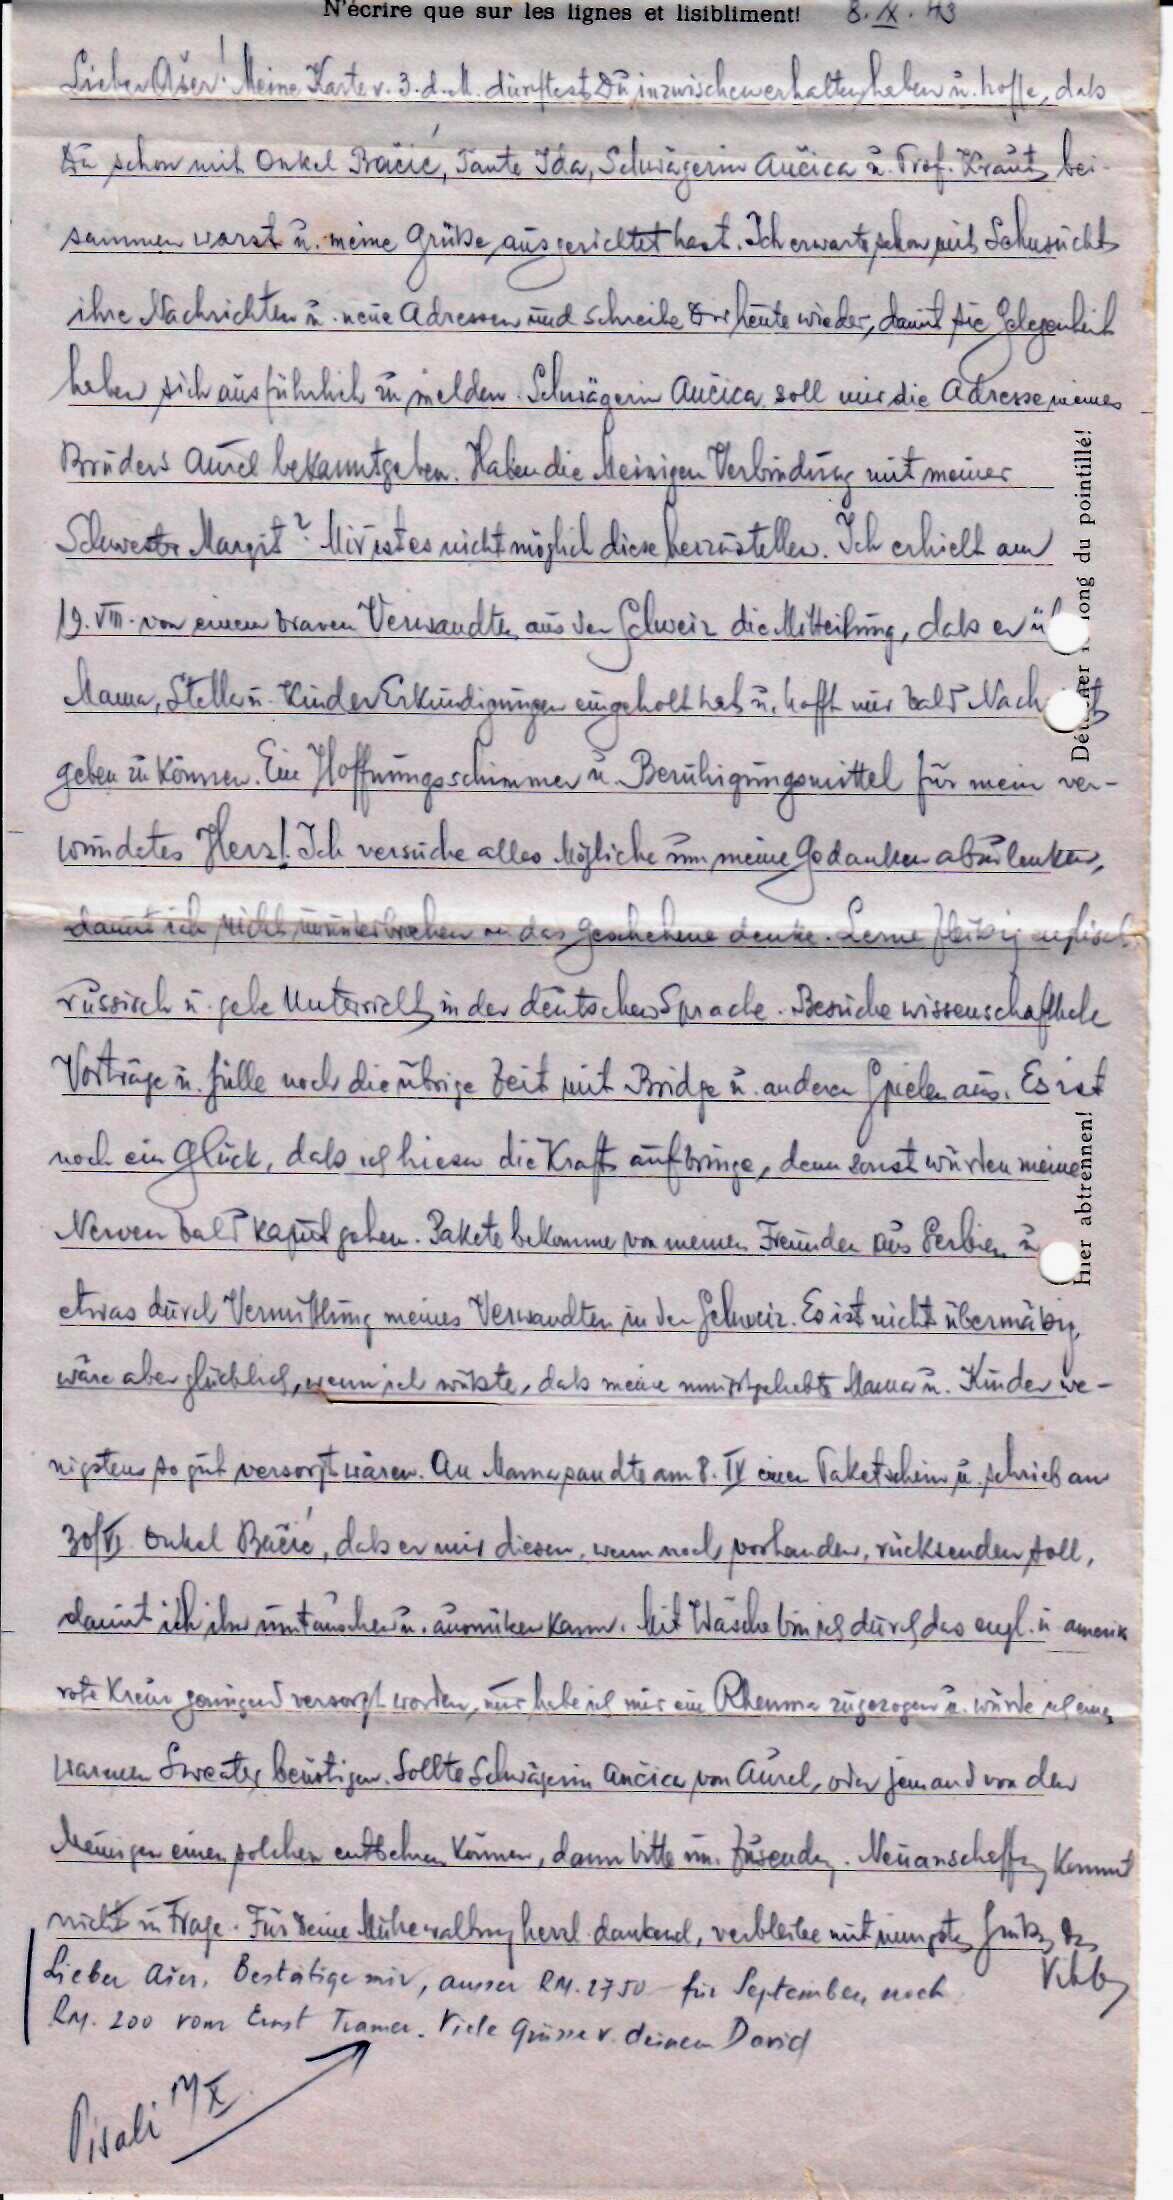 N'écrire que sur les lignes et lisibliment! 8. IX. 43
Lieber Ašer! Meine Karte v. 3. d. M. dürftest Du inzwischen erhalten haben u. hoffe, dass
Du schon mit Onkel Bačić, Tante Ida, Schwägerin Ančica u. Prof. Kraus bei-
sammen warst u. meine Grüße ausgerichtet hast. Ich erwarte schon mit Sehnsucht
ihre Nachrichten u. neue Adressen und schreibe Dir heute wieder, damit sie Gelegenheit
haben sich ausführlich zu melden. Schwägerin Ančica soll mir die Adresse meines
Bruders Aurel bekanntgeben. Haben die Meinigen Verbindung mit meiner
Schwester Margit? Mir ist es nicht möglich diese herzustellen. Ich erhielt am
19. VIII. von einem braven Verwandten aus der Schweiz die Mitteilung, dass er
Mama, Stella u. Kinder Erkundigungen eingeholt hat u. hofft mir bald Nach
geben zu können. Ein Hoffnungsschimmer u. Beruhigungsmittel für mein ver-
wundetes Herz! Ich versuche alles Mögliche um meine Gedanken abzulenken,
damit ich nicht ununterbrochen an das Geschehene denke. Lerne fleißig englisch
russisch u. gebe Unterricht in der deutschen Sprache. Besuche wissenschaftliche
Vorträge u. fülle noch die übrige Zeit mit Bridge u. anderen Spielen aus. Es ist
noch ein Glück, dass ich hiezu die Kraft aufbringe, denn sonst würden meine
Nerven bald kaput gehen. Pakete bekomme von meinen Freunden aus Serbien u
etwas durch Vermittlung meines Verwandten in der Schweiz. Es ist nicht übermäßig,
wäre aber glücklich, wenn ich wüsste, dass meine innigstgeliebte Mama u. Kinder we-
nigstens so gut versorgt wären. An Mama sandte am 8. IV einen Paketschein u. schrieb am
30/VI Onkel Bačić, dass er mir diesen, wenn noch vorhanden, rücksenden soll,
damit ich ihn umtauschen u. ausnützen kann. Mit Wäsche bin ich durch das engl. u. amerik
rote Kreuz genügend versorgt worden, nur habe ich mir ein Rheuma zugezogen u. würde ich einen
warmen Sweater benötigen. Sollte Schwägerin Ančica von Aurel, oder jemand von den
Meinigen einen solchen entbehren können, dann bitte um Zusendg. Neuanschaffg kommt
nicht in Frage. Für Deine Mühewaltung herzl. dankend, verbleibe mit innigsten Grüßen Dein
Lieber Ašer. Bestätige mir, ausser RM. 27 50 für September, noch
RM. 200 vom Ernst Tramer. Viele Grüsse v. deinem David
Pisali 17/X
Détacher long du pointillé!
Hier abtrennen!